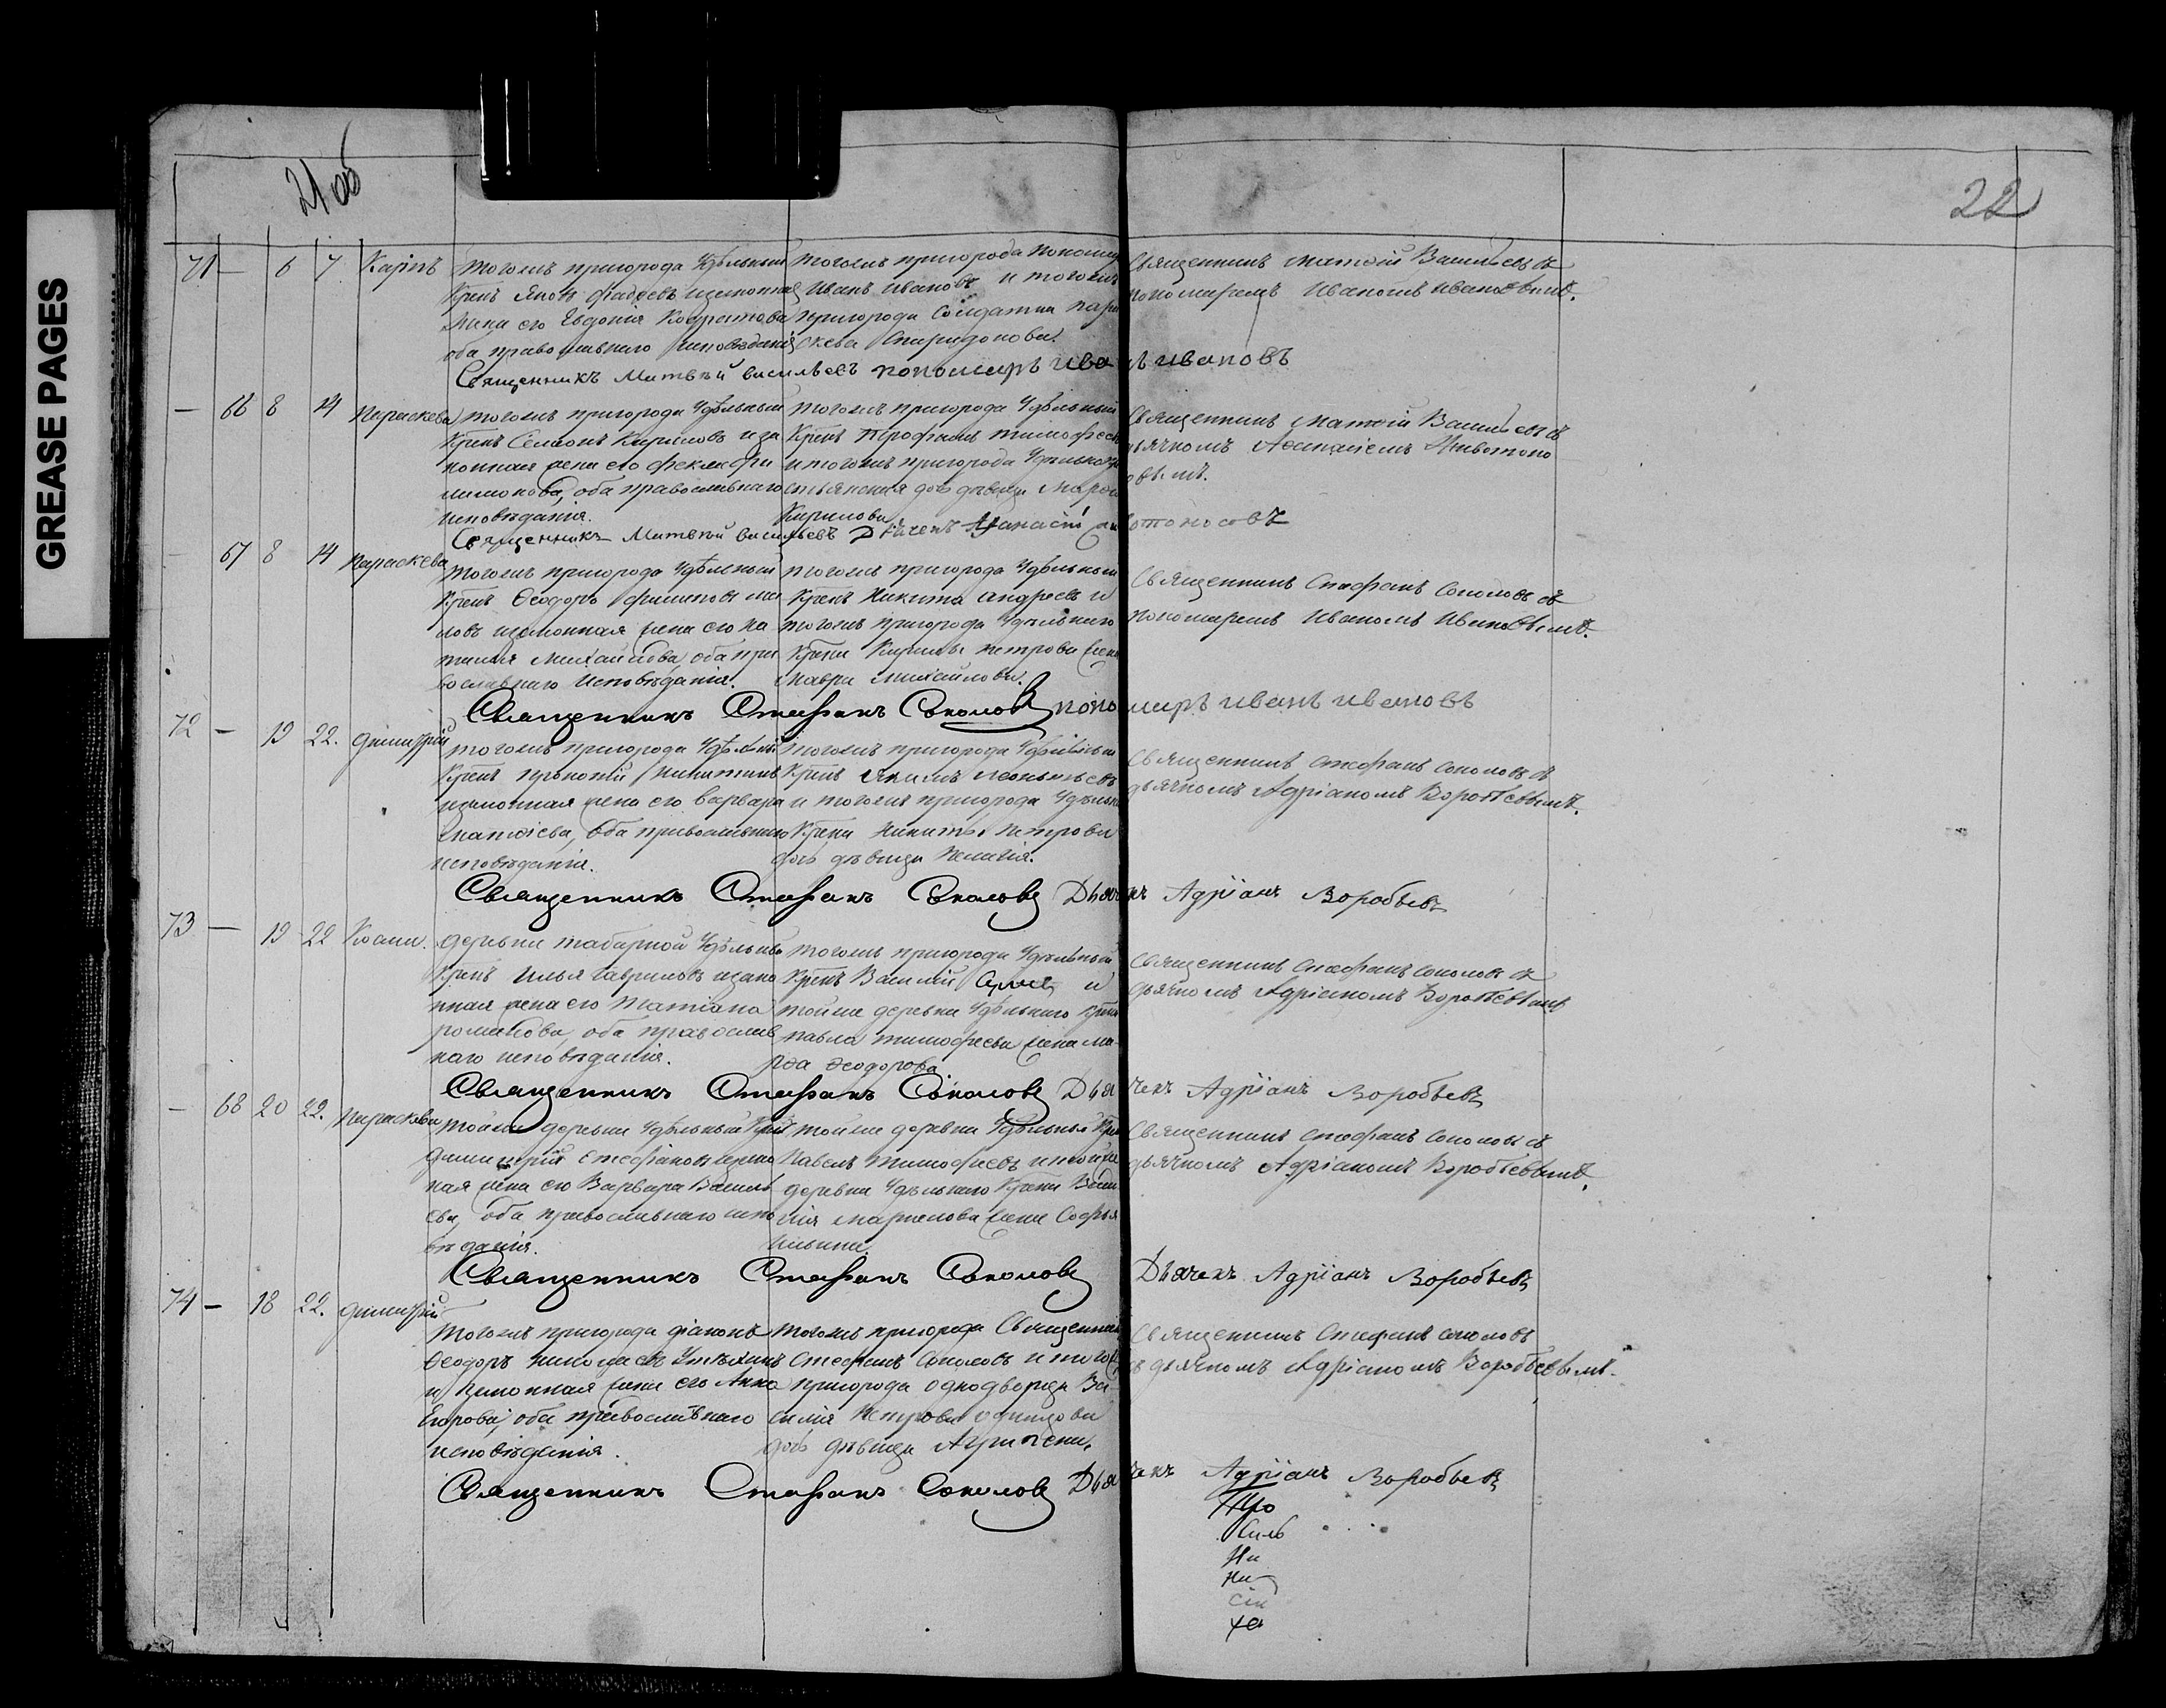 GREASE PAGES
21 об
22
71 — 6 7 Карпъ
Тогожъ пригорода Удѣльный
Крест. Яковъ Фадѣевъ изаконная
жена его Евдокия
оба православнаго исповѣданія
Тогожъ пригорода пономарь
Иванъ Ивановъ и тогожъ
пригорода солдатка Пара
скева Спиридонова.
Священникъ Матѳій Васильевъ съ
пономаремъ Иваномъ Ивановымъ.
Священникъ Матвѣй Васильевъ пономарь Иванъ Ивановъ
— 66 8 14 Параскева
Тогожъ пригорода Удѣльный
Крест. Семіонъ Кириловъ иза
конная жена его Фекла Фи
лимонова, оба православнаго
исповѣданія.
Тогожъ пригорода Удѣльный
Крест. Трофимъ Тимофеевъ
итогожъ пригорода Удѣльнаго
дочь дѣвица
Кирилова
Священникъ Матѳій Васильевъ съ
дьячкомъ Аѳанасіемъ Животоно
совымъ.
Священникъ Матвѣй Васильевъ Дьячекъ Афанасій Животоносовъ
— 67 8 14 Параскева
Тогожъ пригорода Удѣльный
Крест. Ѳеодоръ
изаконная жена его На
талія Михайлова, оба пра
вославнаго исповѣданія.
Тогожъ пригорода Удѣльный
Крест. Никита Андреевъ и
тогожъ пригорода Удѣльнаго
Крест. Кирилы Петрова жена
Мавра Михайлова.
Священникъ Стефанъ Соколовъ съ
пономаремъ Иваномъ Ивановымъ.
Священникъ Стефанъ Соколовъ пономарь Иванъ Ивановъ
72 — 19 22. Димитрій
Тогожъ пригорода Удѣльный
Крест. Никитинъ
изаконная жена его Варвара
Матѳіева, оба православнаго
исповѣданія.
Тогожъ пригорода Удѣльный
Крест. Якимъ Леонтьевъ
и тогожъ пригорода Удѣльнаго
Крест. Никиты Петрова
дочь дѣвица Пелагія.
Священникъ Стефанъ Соколовъ съ
дьячкомъ Адріаномъ Воробьевымъ.
Священникъ Стефанъ Соколовъ Дьячекъ Адріанъ Воробьевъ
73 — 19 22
Деревни Табарной Удѣльный
Крест. Илья Гавриловъ изако
нная жена его Татіана
Романова, оба православ
наго исповѣданія.
Тогожъ пригорода Удѣльный
Крест. Василій и
тойже деревни Удѣльнаго Крест.
Павла Тимофеева жена Ма
рѳа Ѳеодорова
Священникъ Стефанъ Соколовъ съ
дьячкомъ Адріаномъ Воробьевымъ
Священникъ Стефанъ Соколовъ Дьячекъ Адріанъ Воробьевъ
— 68 20 22. Параскева
Тойже деревни Удѣльный Крест.
Димитрій Стефановъ изакон
ная жена его Варвара Василь
ева, оба православнаго испо
вѣданія.
Тойже деревни Удѣльный Крест.
Павелъ Тимофеевъ итойже
деревни Удѣльнаго Крест. Васи
лія жена Софья
Ильина.
Священникъ Стефанъ Соколовъ съ
дьячкомъ Адріаномъ Воробьевымъ.
Священникъ Стефанъ Соколовъ Дьячекъ Адріанъ Воробьевъ
74 — 18 22. Димитрій
Тогожъ пригорода діаконъ
Ѳеодоръ Николаевъ
и законная жена его Анна
Егорова, оба православнаго
исповѣданія.
Тогожъ пригорода Священникъ
Стефанъ Соколовъ и тогожъ
пригорода однодворца Ва
силія Петрова
дочь дѣвица
Священникъ Стефанъ Соколовъ
съ дьячкомъ Адріаномъ Воробьевымъ.
Священникъ Стефанъ Соколовъ Дьячекъ Адріанъ Воробьевъ